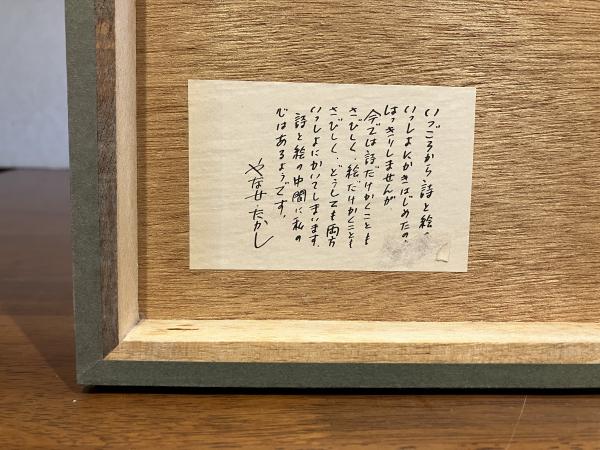 いつごろから詩と絵を
いっしょにかきはじめたのか
はっきりしませんが
今では詩だけかくことも
さびしく、絵だけかくことも
さびしく、どうしても両方
いっしょにかいてしまいます。
詩と絵の中間に私の
心はあるようです。
やなせ・たかし